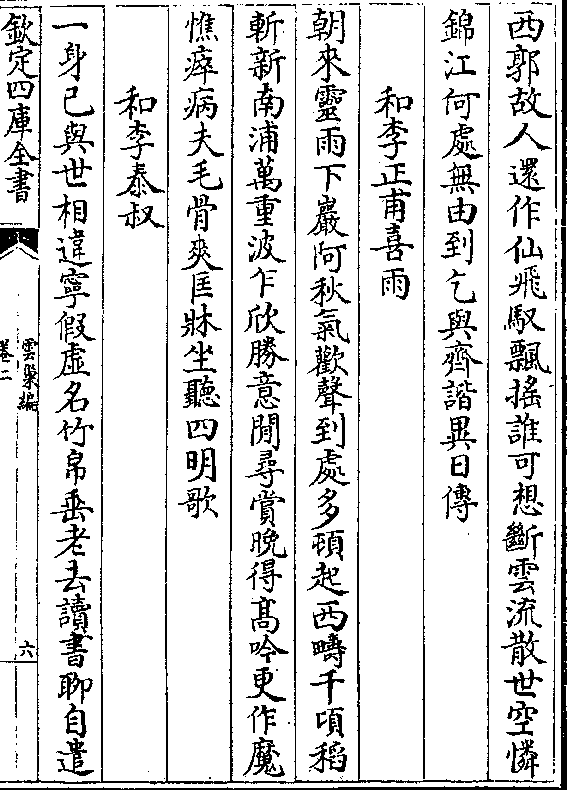 西郭故人還作仙飛馭飄搖誰可想斷雲流散世空憐
錦江何處無由到乞與齊諧異日傳
和李正甫喜雨
朝來靈雨下巖阿秋氣歡聲到處多頓起西疇千頃稻
斬新南浦萬重波乍欣勝意閒尋賞晚得高吟更作魔
憔瘁病夫毛骨爽匡牀坐聽四明歌
和李泰叔
一身已與世相違寧假虛名竹帛垂老去讀書聊自遣
欽定四庫全書
雲巢編
卷二
六